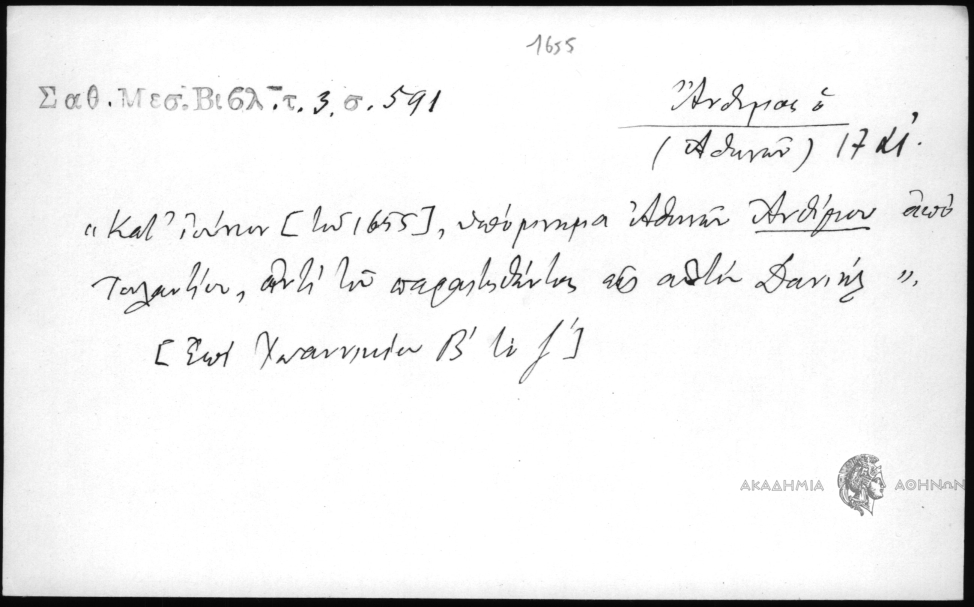 1655
Σαθ. Μεσ. Βιβλ. τ. 3. σ. 591
Ἄνθιμος ὁ
(Ἀθηνῶν) 17 αἰ.
"Κατ' Ἰούνιον [τοῦ 1655], ὑπόμνημα Ἀθηνῶν Ἀνθίμου ἀπὸ
Ταλαντίου, ἀντὶ τοῦ παραιτηθέντος εἰς αὐτὴν Δανιήλ".
[Ἐπὶ Ἰωαννικίου Β' τὸ γ']
ΑΚΑΔΗΜΙΑ ΑΘΗΝΩΝ